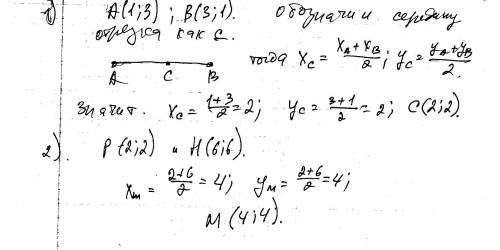 1) A(1;3) ; B(3;1). обозначим середину
отрезка как C.
A C B тогда x_C = (x_A + x_B)/2 ; y_C = (y_A + y_B)/2.
значит. x_C = (1+3)/2 = 2; y_C = (3+1)/2 = 2; C(2;2).
2). P(2;2) и H(6;6).
x_M = (2+6)/2 = 4; y_M = (2+6)/2 = 4;
M(4;4).